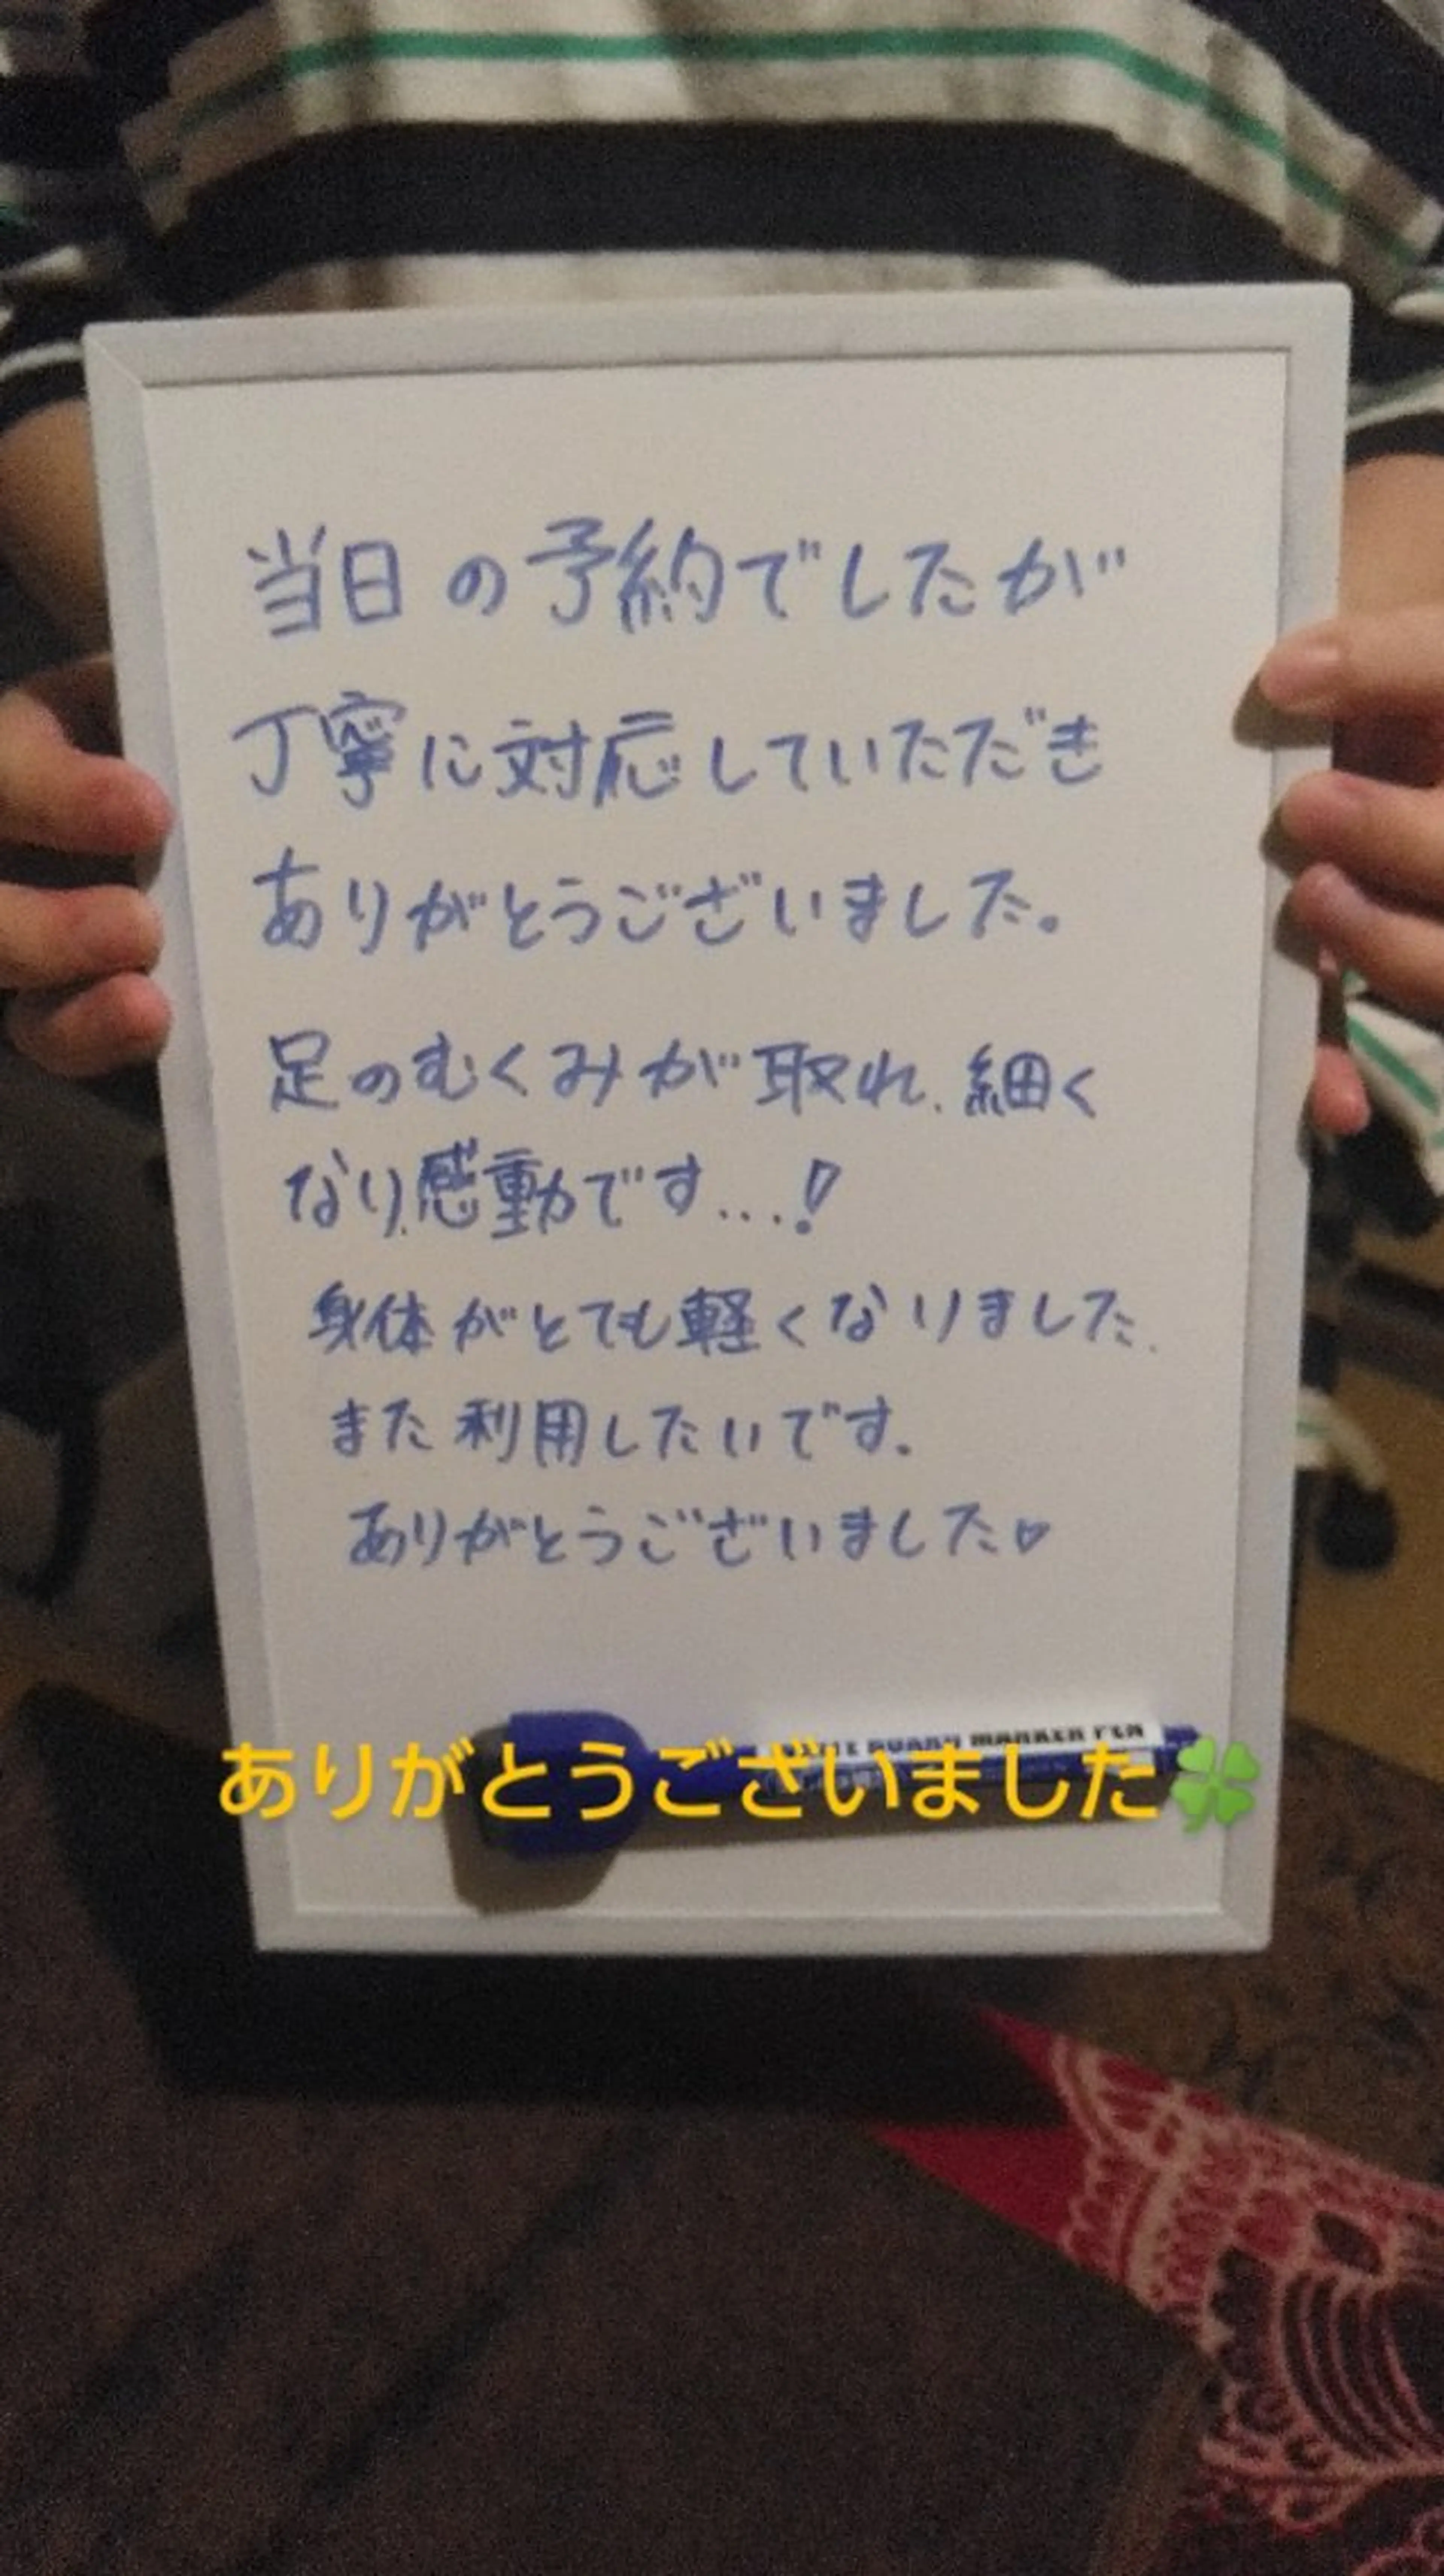 当日の予約でしたが
丁寧に対応していただき
ありがとうございました。
足のむくみが取れ、細く
なり、感動です...!
身体がとても軽くなりました、
また利用したいです。
ありがとうございました♡
BOARD MARKER PEN
ありがとうございました🍀